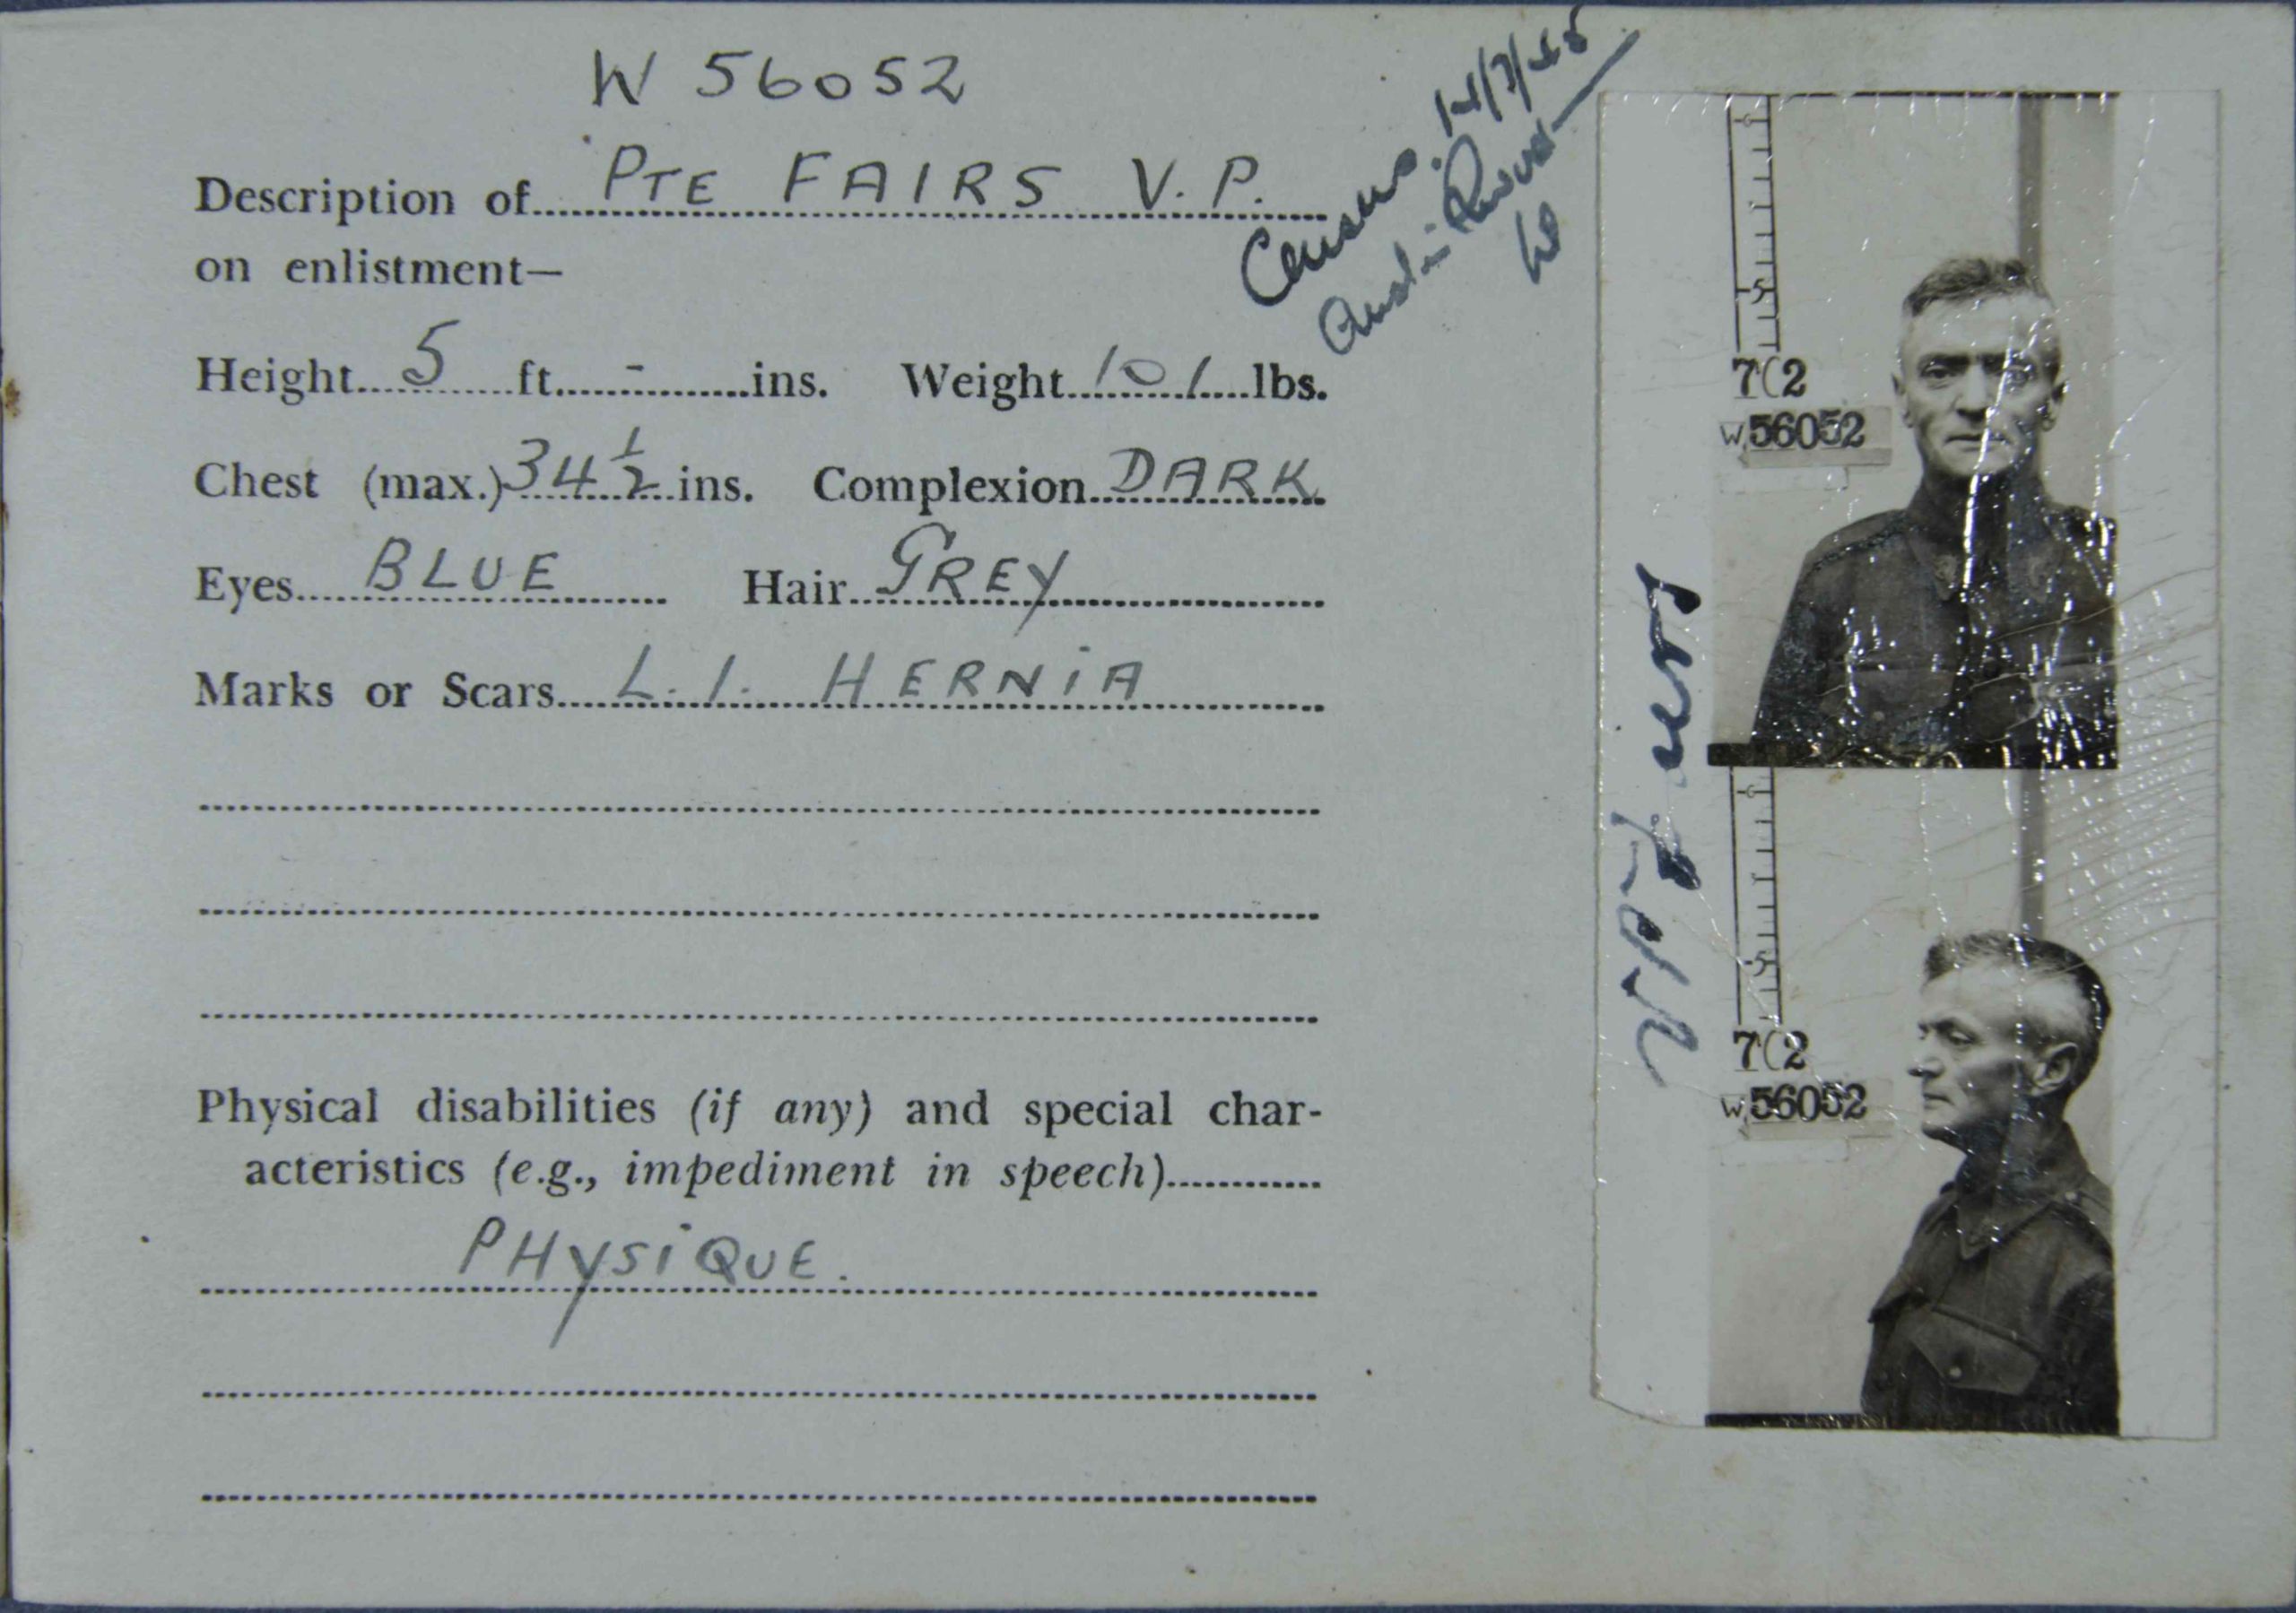 W 56052
Description of PTE FAIRS V.P.
on enlistment—
Height 5 ft. - ins. Weight 101 lbs.
Chest (max.) 34 1/2 ins. Complexion DARK
Eyes BLUE Hair GREY
Marks or Scars L. I. HERNIA
Physical disabilities (if any) and special char-
acteristics (e.g., impediment in speech)
PHYSIQUE.
Census.
6
5
7(2
W.56052
6
5
7(2
W.56052